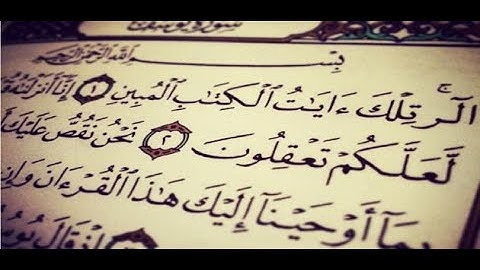 سورة يوسف
بسم الله الرحمن الرحيم
الٓر تِلْكَ ءَايَٰتُ ٱلْكِتَٰبِ ٱلْمُبِينِ ١ إِنَّآ أَنزَلْنَٰهُ
لَّعَلَّكُمْ تَعْقِلُونَ ٢ نَحْنُ نَقُصُّ عَلَيْكَ
بِمَآ أَوْحَيْنَآ إِلَيْكَ هَٰذَا ٱلْقُرْءَانَ وَإِن
إِذْ قَالَ